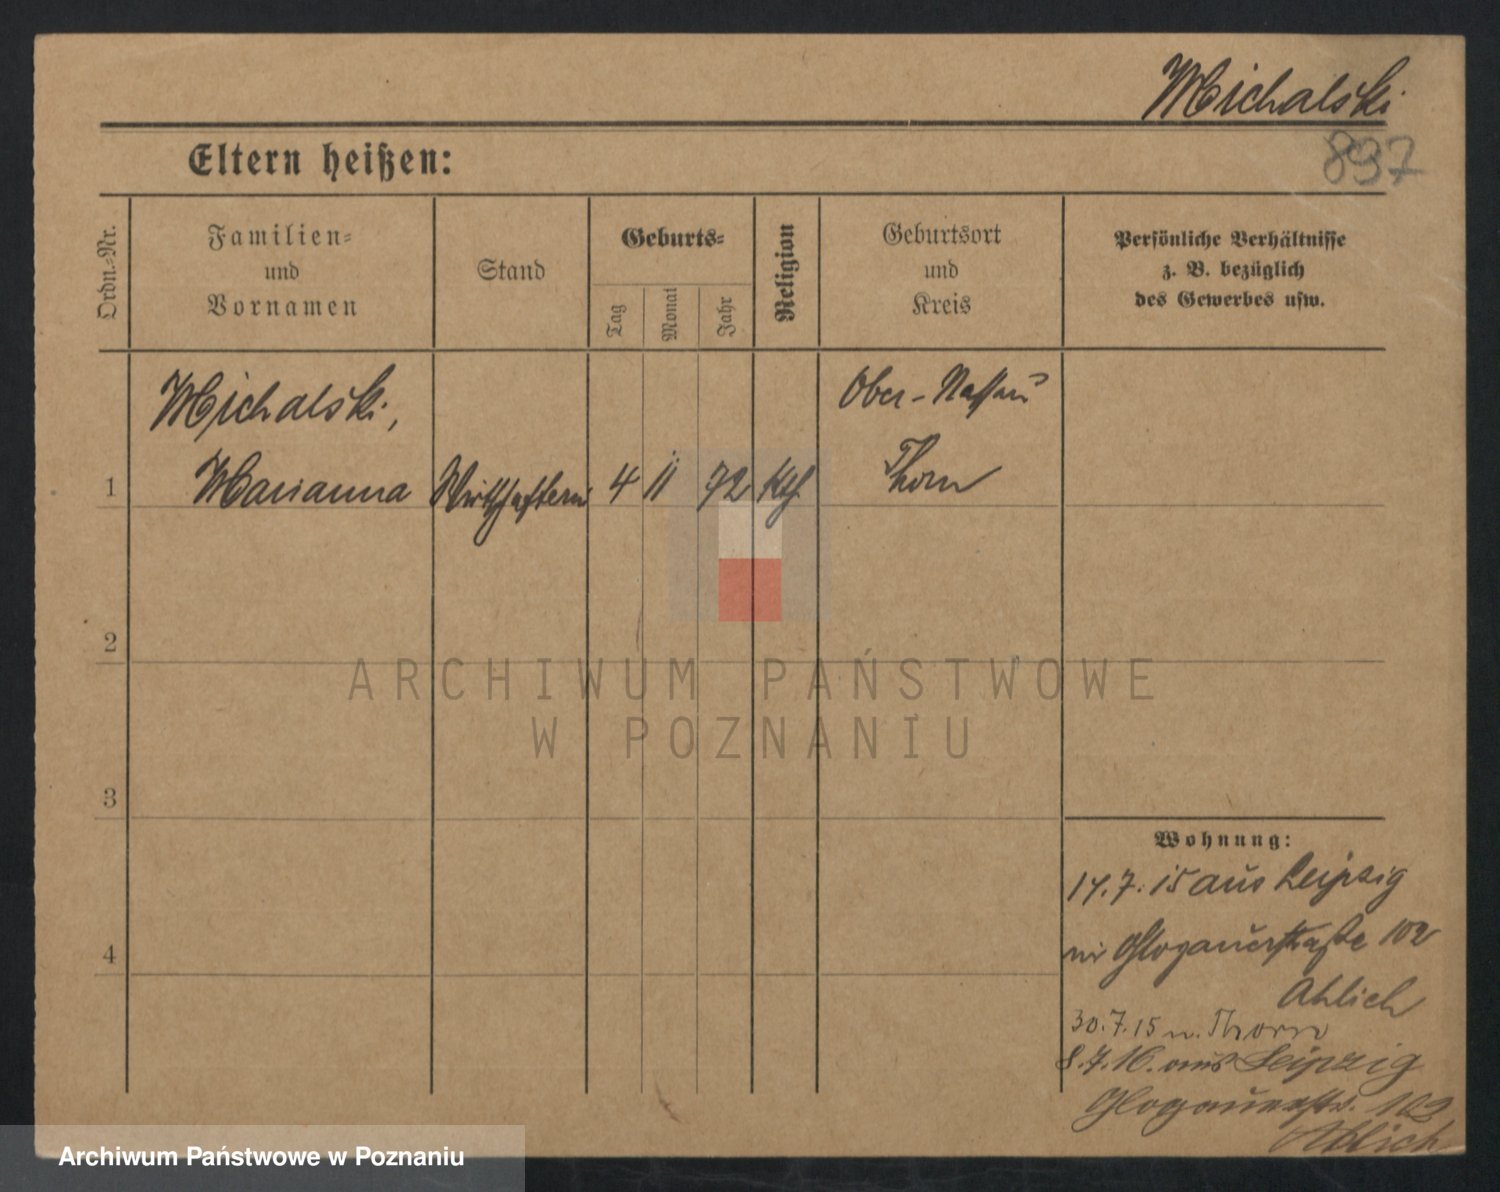 Michalski
897
Eltern heißen:
Ordn.-Nr.
Familien-
und
Vornamen
Stand
Geburts-
Tag
Monat
Jahr
Religion
Geburtsort
und
Kreis
Persönliche Verhältnisse
z. B. bezüglich
des Gewerbes usw.
Michalski,
Ober-Nassau
1 Marianna Wirtschafterin 4 11 72 Kth. Thorn
2
ARCHIWUM PAŃSTWOWE
W POZNANIU
3
Wohnung:
14.7.15 aus Leipzig
4
Glogauerstraße 102
Ahlich
30.7.15 n. Thorn
8.7.16. aus Leipzig
Glogauerstr. 102
Ahlich
Archiwum Państwowe w Poznaniu